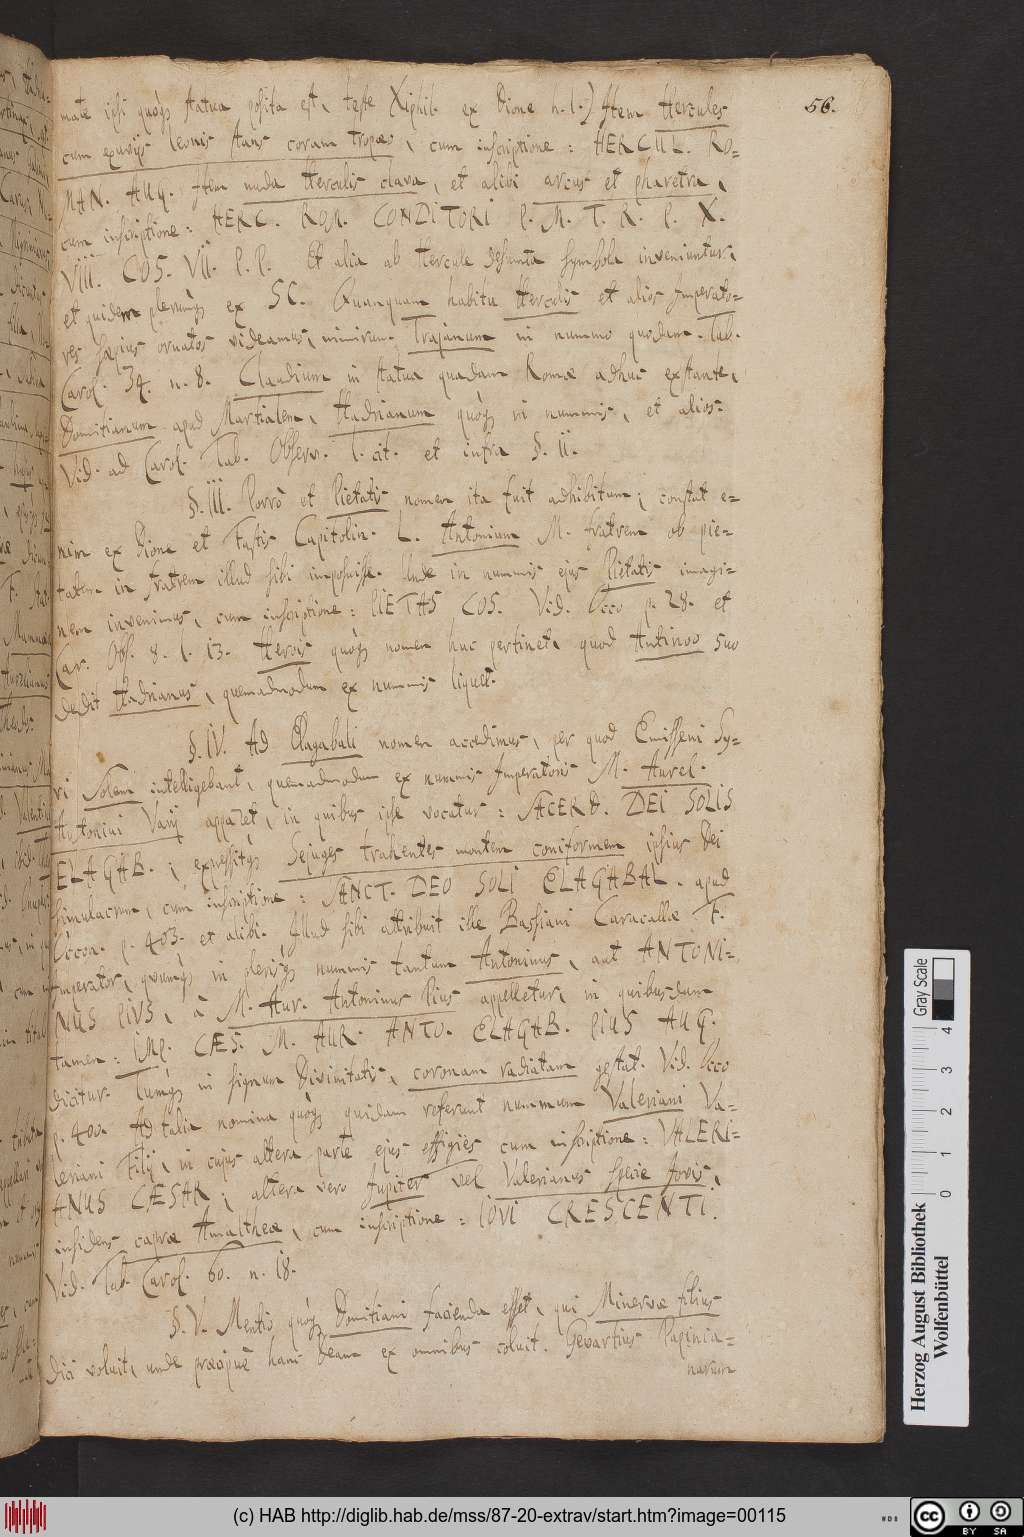 56.
mate ipsi quoqs statua posita est, teste Xiphil. ex Dione n. l.) Item Hercules
cum exuvijs leonis stans coram tropæo, cum inscriptione: HERCUL. RO=
MAN. AUG. Item nuda Herculis clava, et alibi arcus et pharetra,
cum inscriptione: HERC. ROM. CONDITORI P. M. T. R. P. X.
VIII. COS. VII. P. P. Et alia ab Hercule desumta symbola inveniuntur,
et quidem plerumqs ex SC. Quanquam habitu Herculis et alios Imperato=
res sæpius ornatos videamus, nimirum, Trajanum in nummo quodam. Tab.
Carol. 34. n. 8. Claudium in statua quadam Romæ adhuc exstante,
Domitianum apud Martialem, Hadrianum quoqs in nummis, et alios:
Vid. ad Carol. Tab. Observ. l. cit. et infra §. II.
§. III. Porrò et Pietatis nomen ita fuit adhibitum; constat e=
nim ex Dione et Fastis Capitolin. L. Antonium M. fratrem ob pie=
tatem in fratrem illud sibi imposuisse. Unde in nummis ejus Pietatis imagi=
nem invenimus, cum inscriptione: PIETAS COS. Vid. Occo p. 28. et
Car. Obs. 8. l. 13. Herois quoqs nomen huc pertinet, quod Antinoo suo
dedit Hadrianus, quemadmodum ex nummis liquet.
§. IV. Ad Elagabali nomen accedimus, per quod Emisseni Sy=
ri Solem intelligebant, quemadmodum ex nummis Imperatoris M. Aurel.
Antonini Varij apparet, in quibus ipse vocatur: SACERD. DEI SOLIS
ELAGAB.; expressitqs Sejuges trahentes montem coniformem ipsius Dei
simulacrum, cum inscriptione: SANCT. DEO SOLI ELAGABAL. apud
Occon. p. 403. et alibi. Illud sibi attribuit ille Bassiani Caracallæ F.
Imperator, quumqs in plerisqs nummis tantum Antoninus, aut ANTONI=
NUS PIVS, à M. Aur. Antoninus Pius appelletur, in quibusdam
tamen: IMP. CÆS. M. AUR. ANTO. ELAGAB. PIUS AUG.
dicitur. Tumqs in signum Divinitatis, coronam radiatam gestat. Vid. Occo
p. 400. Ad talia nomina quoqs quidam referunt nummum Valeriani Va=
leriani Filij, in cujus altera parte ejus effigies cum inscriptione: VALERI=
ANUS CÆSAR; altera vero Jupiter vel Valerianus specie Jovis,
insidens capræ Amaltheæ, cum inscriptione: IOVI CRESCENTI.
Vid. Tab. Carol. 60. n. 18.
§. V. Mentio quoqs Domitiani facienda esset, qui Minervæ filius
dici voluit, unde præcipuè hanc Deam ex omnibus coluit. Gevartius Papinia=
narum
Gray Scale
0 1 2 3 4
Herzog August Bibliothek
Wolfenbüttel
(c) HAB http://diglib.hab.de/mss/87-20-extrav/start.htm?image=00115
cc BY SA